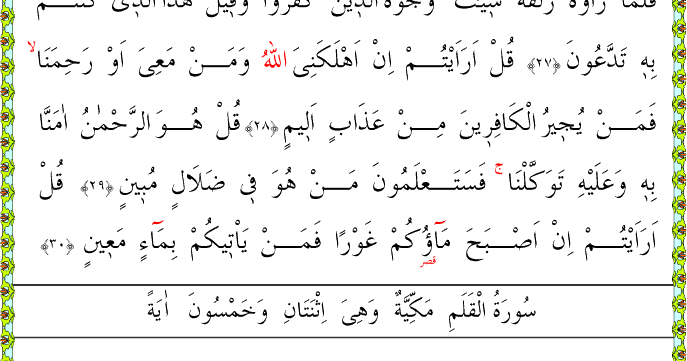 فَلَمَّا رَاَوْهُ زُلْفَةً سٖٓيـَٔتْ وُجُوهُ الَّذٖينَ كَفَرُوا وَقٖيلَ هٰذَا الَّذٖى كُنْتُمْ
بِهٖ تَدَّعُونَ ﴿٢٧﴾ قُلْ اَرَاَيْتُمْ اِنْ اَهْلَكَنِىَ اللّٰهُ وَمَنْ مَعِىَ اَوْ رَحِمَنَا ۙ
فَمَنْ يُجٖيرُ الْكَافِرٖينَ مِنْ عَذَابٍ اَلٖيمٍ ﴿٢٨﴾ قُلْ هُوَ الرَّحْمٰنُ اٰمَنَّا
بِهٖ وَعَلَيْهِ تَوَكَّلْنَا ۚ فَسَتَعْلَمُونَ مَنْ هُوَ فٖى ضَلَالٍ مُبٖينٍ ﴿٢٩﴾ قُلْ
اَرَاَيْتُمْ اِنْ اَصْبَحَ مَٓاؤُكُمْ غَوْرًا فَمَنْ يَاْتٖيكُمْ بِمَٓاءٍ مَعٖينٍ ﴿٣٠﴾
قصر
سُورَةُ الْقَلَمِ مَكِّيَّةٌ وَهِىَ اِثْنَتَانِ وَخَمْسُونَ اٰيَةً